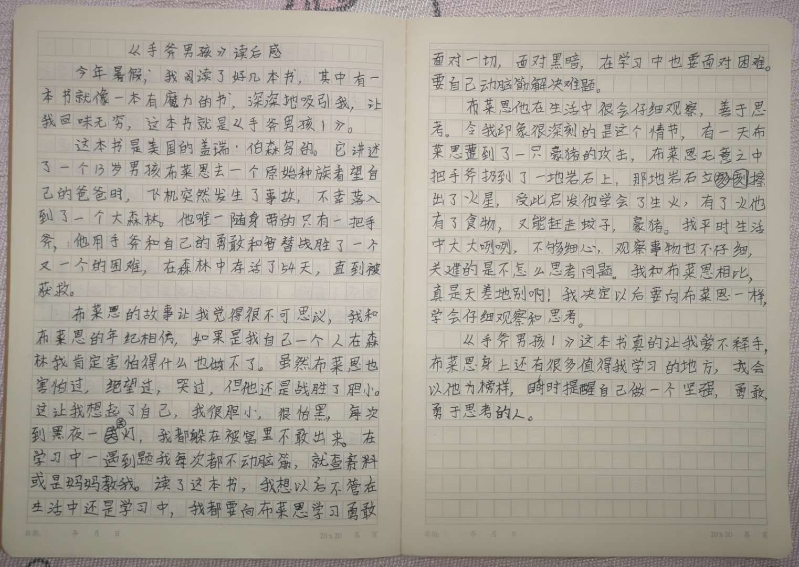 《手斧男孩》读后感
今年暑假，我阅读了好几本书，其中有一
本书就像一本有魔力的书，深深地吸引我，让
我回味无穷，这本书就是《手斧男孩1》。
这本书是美国的盖瑞·伯森写的。它讲述
了一个13岁男孩布莱思去一个原始种族看望自
己的爸爸时，飞机突然发生了事故，不幸落入
到了一个大森林。他唯一随身带的只有一把手
斧，他用手斧和自己的勇敢和智慧战胜了一个
又一个的困难，在森林中存活了54天，直到被
获救。
布莱思的故事让我觉得很不可思议，我和
布莱思的年纪相仿，如果是我自己一个人在森
林我肯定害怕得什么也做不了。虽然布莱思也
害怕过，绝望过，哭过，但他还是战胜了胆小。
这让我想起了自己，我很胆小，很怕黑，每次
到黑夜一关灯，我都躲在被窝里不敢出来。在
学习中一遇到题我每次都不动脑筋，就查资料
或是妈妈教我。读了这本书，我想以后不管在
生活中还是学习中，我都要向布莱思学习勇敢
面对一切，面对黑暗，在学习中也要面对困难。
要自己动脑筋解决难题。
布莱思他在生活中很会仔细观察，善于思
考。令我印象很深刻的是这个情节，有一天布
莱思遭到了一只豪猪的攻击，布莱思无意之中
把手斧扔到了一地岩石上，那地岩石立刻擦
出了火星，受此启发他学会了生火，有了火他
有了食物，又能赶走蚊子，豪猪。我平时生活
中大大咧咧，不够细心，观察事物也不仔细，
关难的是不怎么思考问题。我和布莱思相比，
真是天差地别啊！我决定以后要向布莱思一样，
学会仔细观察和思考。
《手斧男孩1》这本书真的让我爱不释手，
布莱思身上还有很多值得我学习的地方，我会
以他为榜样，时时提醒自己做一个坚强，勇敢，
勇于思考的人。
年 月 日
20×20
第 页
年 月 日
20×20
第 页